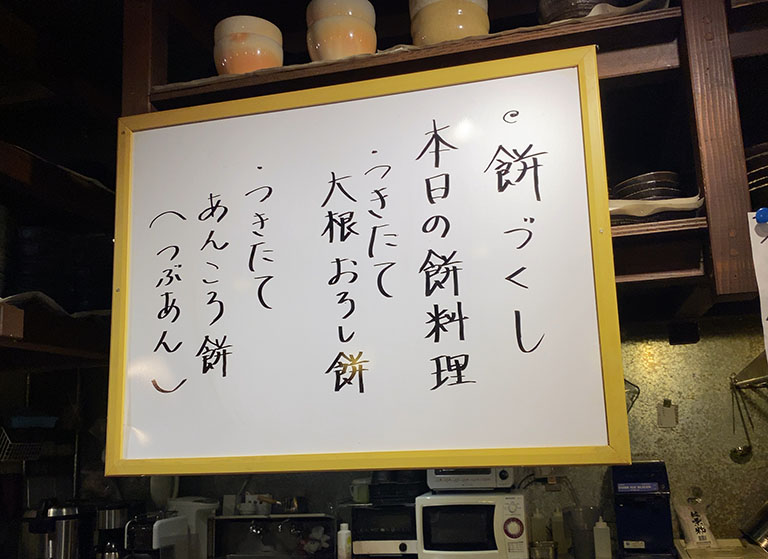 餅づくし
本日の餅料理
・つきたて
大根おろし餅
・つきたて
あんころ餅
(つぶあん)